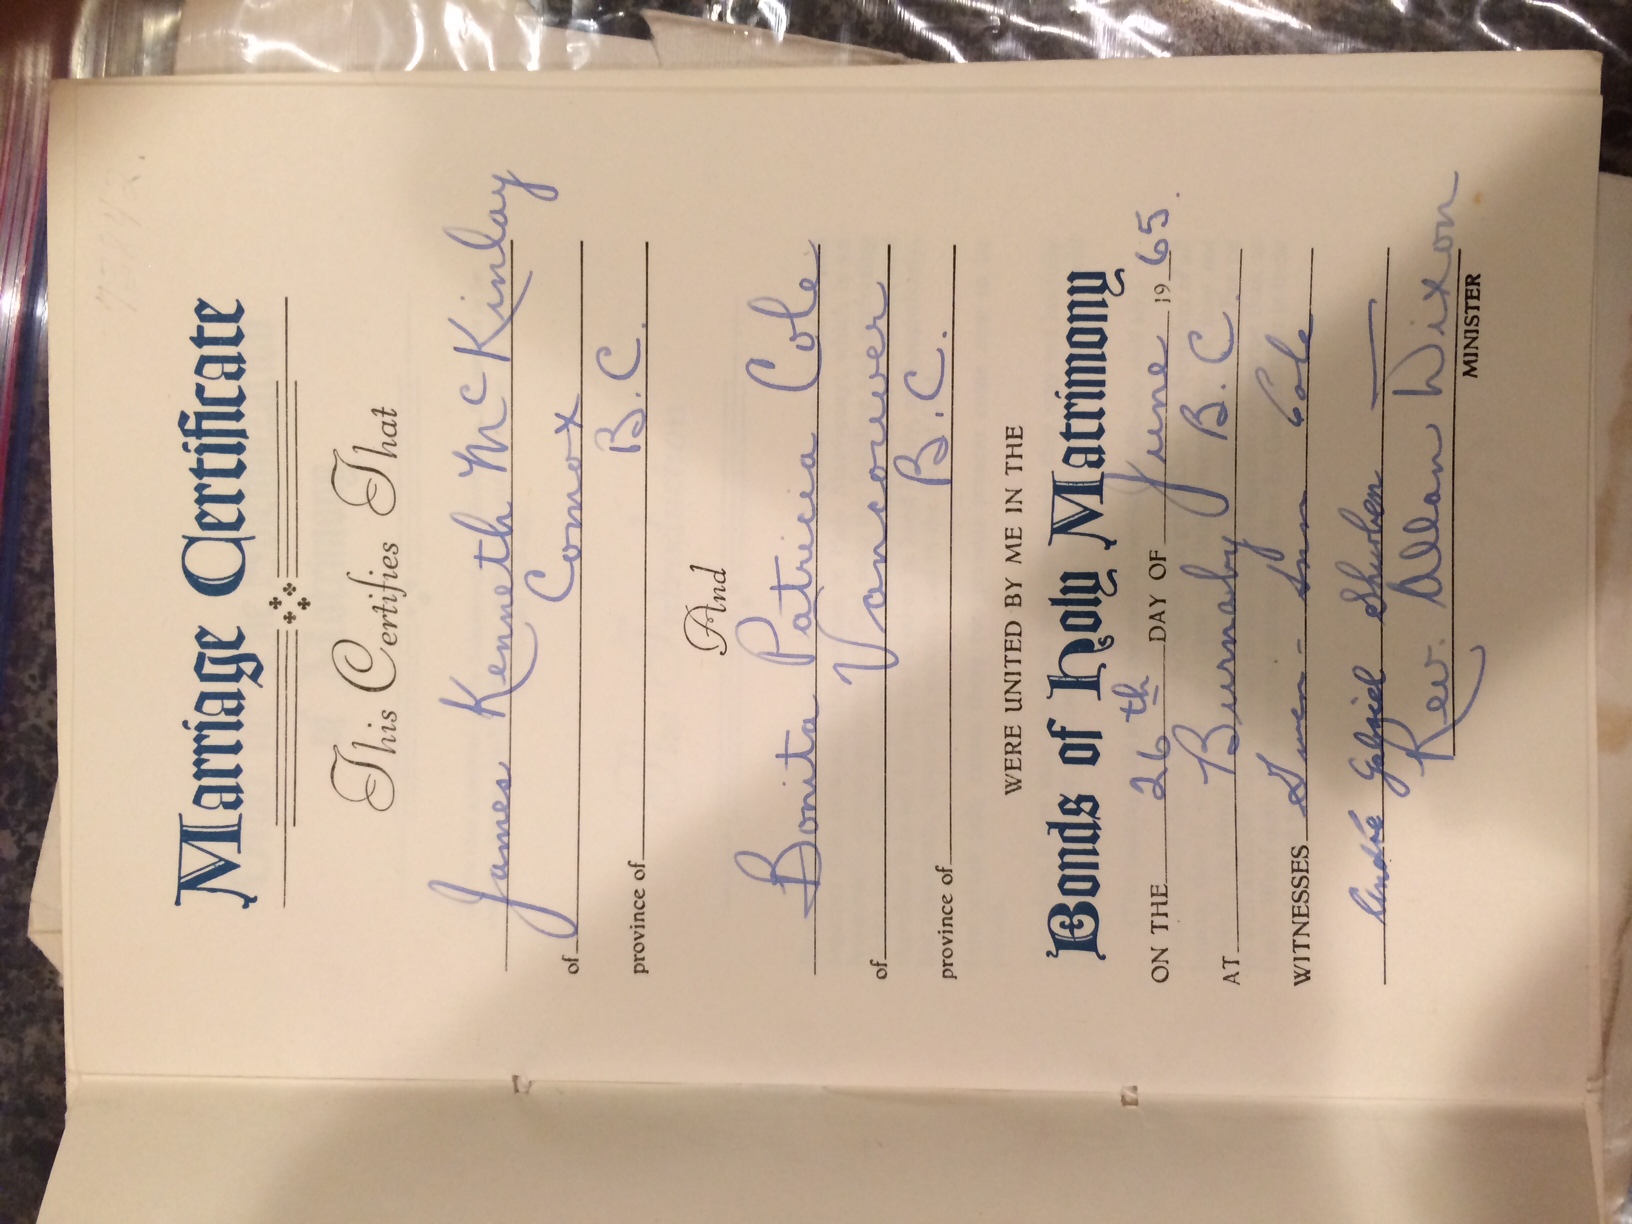 73842.
Marriage Certificate
This Certifies That
James Kenneth McKinlay
of Comox
province of B.C.
And
Bonita Patricia Cole
of Vancouver
province of B.C.
WERE UNITED BY ME IN THE
Bonds of Holy Matrimony
ON THE 26th DAY OF June 1965.
AT Burnaby B.C.
WITNESSES Gwen-Ann Cole
André Gabriel Shurben
Rev. Allan Dixon
MINISTER